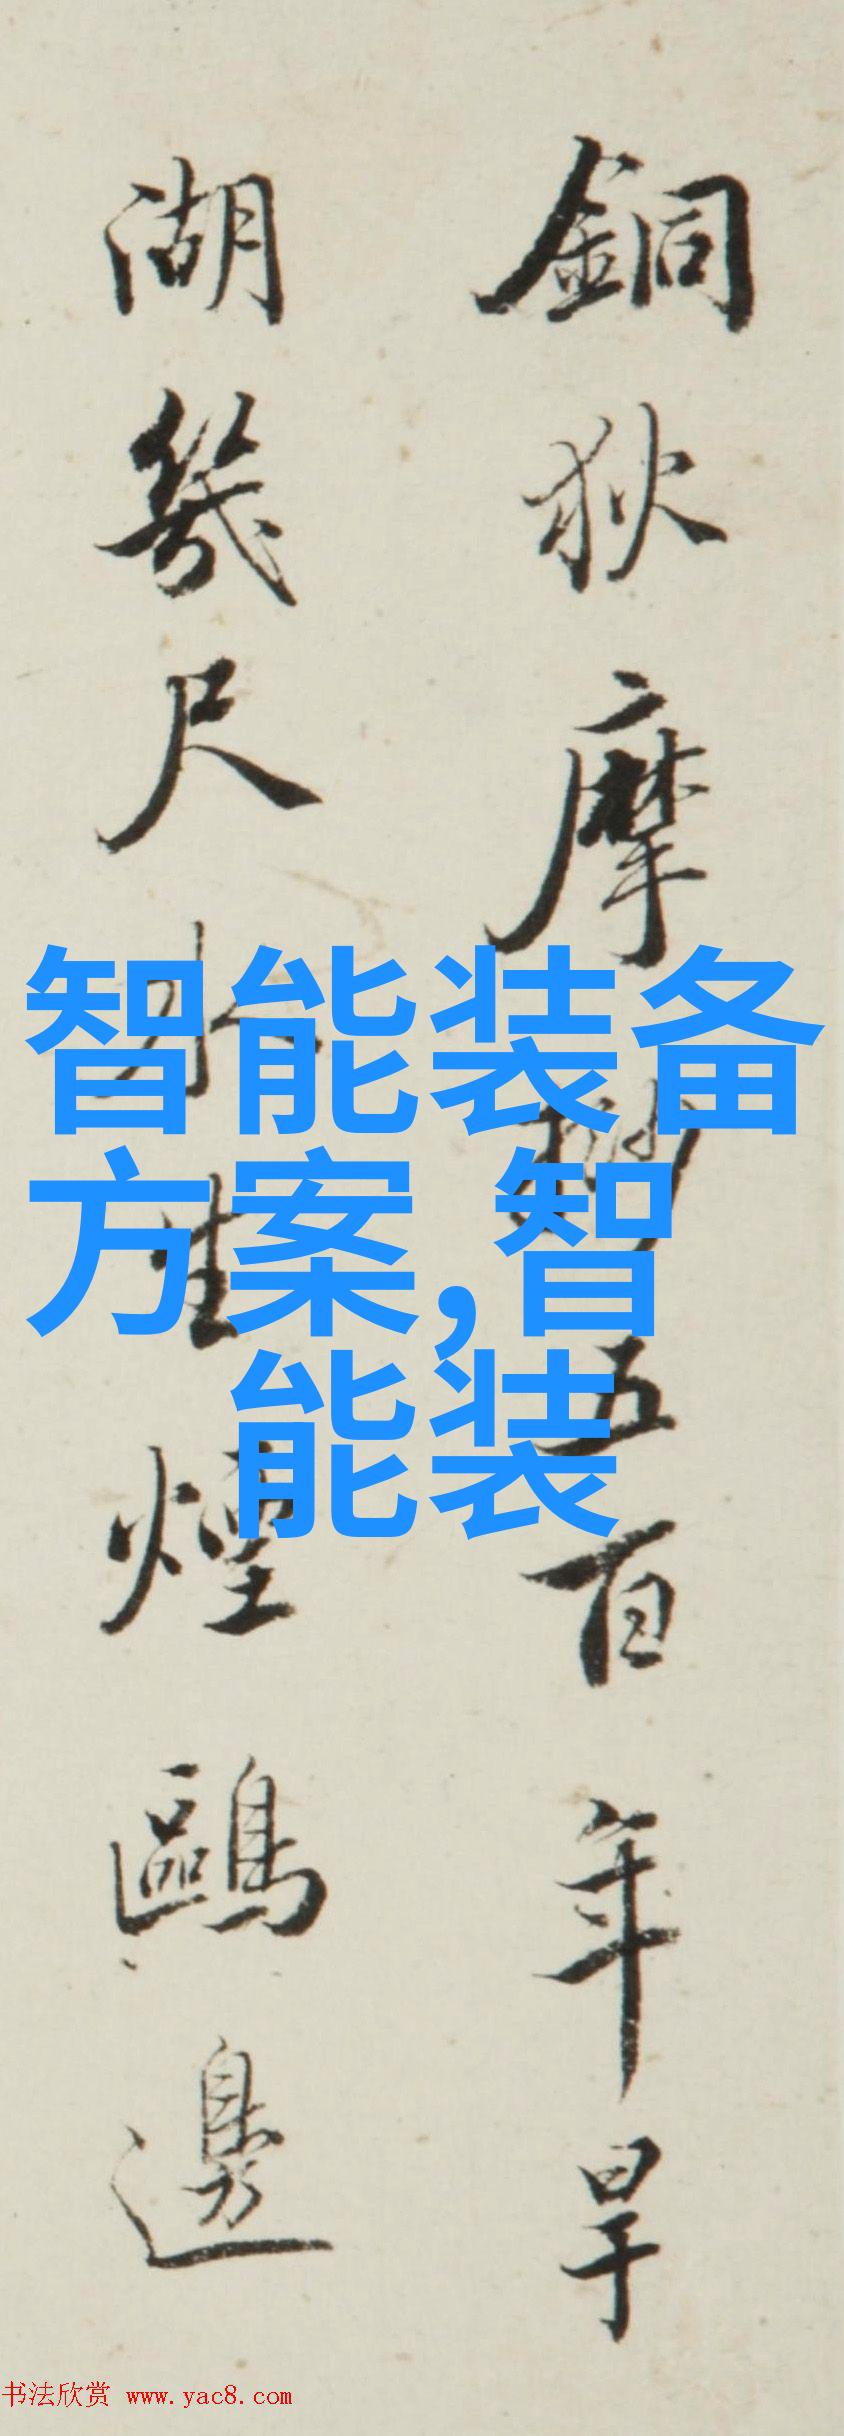 銅狄摩挱五百年旱
湖幾尺水生煙鷗邊
智能装备
方案,智
能装
书法欣赏 www.yac8.com